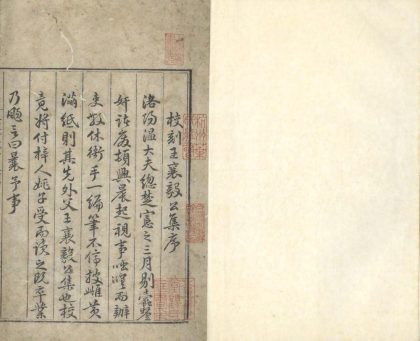 校刻王襄毅公集序
洛陽温大夫總楚憲之三月剔蠹
奸詰廢頓興晨起視事噉
吏散休衙手一編筆不停披雌黄
滿紙則其先外父王襄毅公集也校
竟將付梓人姚子受而讀之既卒業
乃颺言曰曩予事